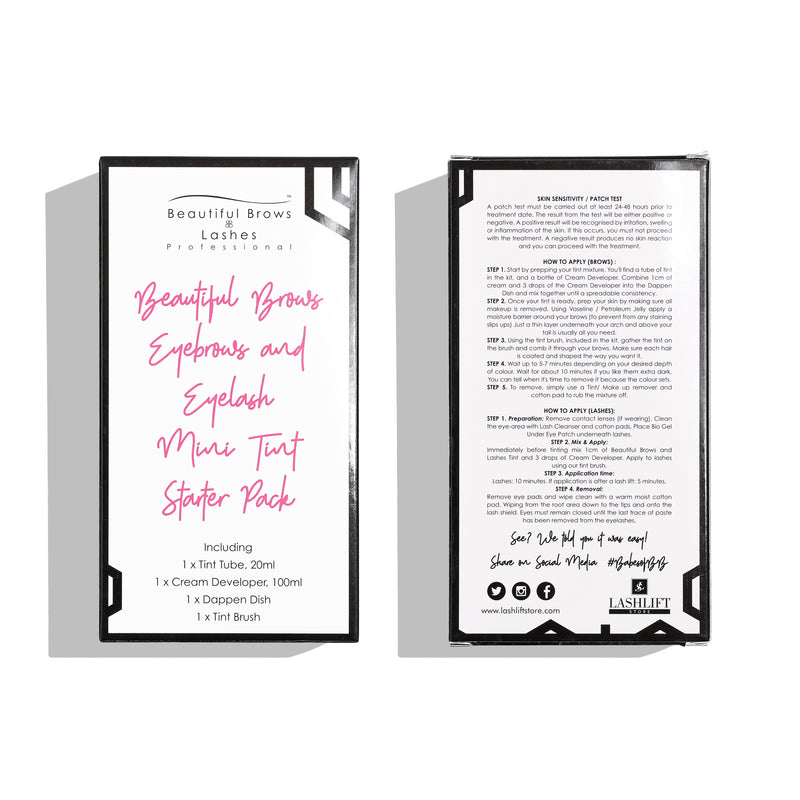 Beautiful Brows
BB
Lashes
Professional
™
Beautiful Brows
Eyebrows and
Eyelash
Mini Tint
Starter Pack
Including
1 x Tint Tube, 20ml
1 x Cream Developer, 100ml
1 x Dappen Dish
1 x Tint Brush
SKIN SENSITIVITY / PATCH TEST
A patch test must be carried out at least 24-48 hours prior to
treatment date. The result from the test will be either positive or
negative. A positive result will be recognised by irritation, swelling
or inflammation of the skin. If this occurs, you must not proceed
with the treatment. A negative result produces no skin reaction
and you can proceed with the treatment.
HOW TO APPLY (BROWS) :
STEP 1. Start by prepping your tint mixture. You'll find a tube of tint
in the kit, and a bottle of Cream Developer. Combine 1cm of
cream and 3 drops of the Cream Developer into the Dappen
Dish and mix together until a spreadable consistency.
STEP 2. Once your tint is ready, prep your skin by making sure all
makeup is removed. Using Vaseline / Petroleum Jelly apply a
moisture barrier around your brows (to prevent from any staining
slips ups) Just a thin layer underneath your arch and above your
tail is usually all you need.
STEP 3. Using the tint brush, included in the kit, gather the tint on
the brush and comb it through your brows. Make sure each hair
is coated and shaped the way you want it.
STEP 4. Wait up to 5-7 minutes depending on your desired depth
of colour. Wait for about 10 minutes if you like them extra dark.
You can tell when it's time to remove it because the colour sets.
STEP 5. To remove, simply use a Tint/ Make up remover and
cotton pad to rub the mixture off.
HOW TO APPLY (LASHES):
STEP 1. Preparation: Remove contact lenses (if wearing). Clean
the eye-area with Lash Cleanser and cotton pads. Place Bio Gel
Under Eye Patch underneath lashes.
STEP 2. Mix & Apply:
Immediately before tinting mix 1cm of Beautiful Brows and
Lashes Tint and 3 drops of Cream Developer. Apply to lashes
using our tint brush.
STEP 3. Application time:
Lashes: 10 minutes. If application is after a lash lift: 5 minutes.
STEP 4. Removal:
Remove eye pads and wipe clean with a warm moist cotton
pad. Wiping from the root area down to the tips and onto the
lash shield. Eyes must remain closed until the last trace of paste
has been removed from the eyelashes.
See? We told you it was easy!
Share on Social Media #BabesofBB
www.lashliftstore.com
LASHLIFT
STORE